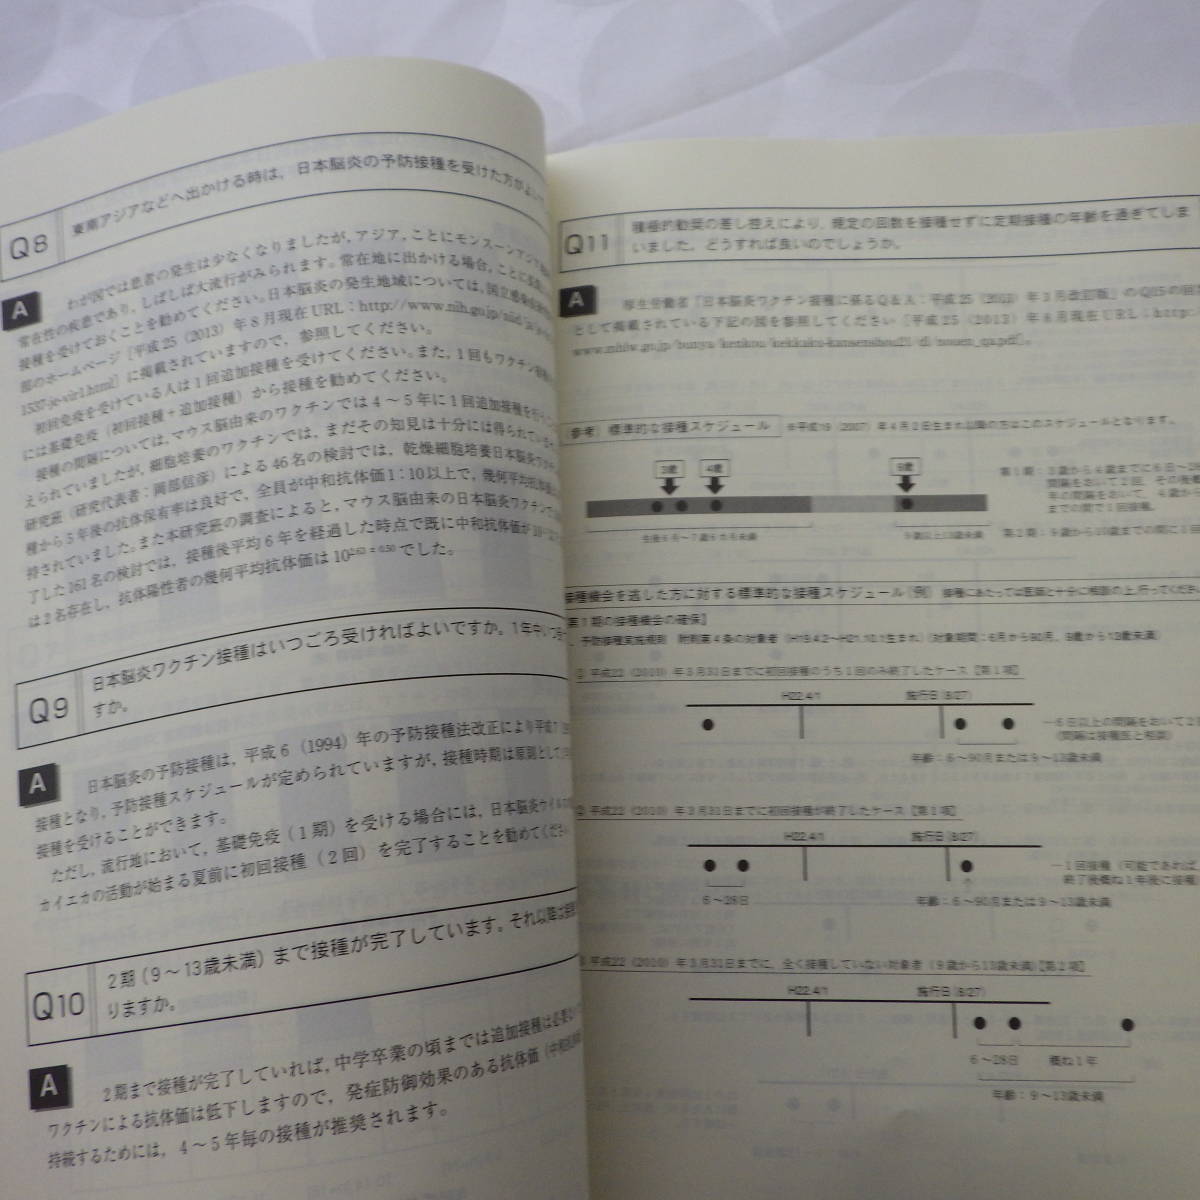 Q8
東南アジアなどへ出かける時は，日本脳炎の予防接種を受けた方がよい
A
わが国では患者の発生は少なくなりましたが，アジア，ことにモンスーンアジア
常在性の疾患であり，しばしば大流行がみられます。常在地に出かける場合，ことに
接種を受けておくことを勧めてください。日本脳炎の発生地域については，国立感染
部のホームページ［平成25（2013）年8月現在URL：http://www.nih.go.jp/niid/
1537-je-vir1.html］に掲載されていますので，参照してください。
初回免疫を受けている人は1回追加接種を受けてください。また，1回もワクチン
には基礎免疫（初回接種＋追加接種）から接種を勧めてください。
接種の間隔については，マウス脳由来のワクチンでは4～5年に1回追加接種を
えられていましたが，細胞培養のワクチンでは，まだその知見は十分には得られていま
研究班（研究代表者：岡部信彦）による46名の検討では，乾燥細胞培養日本脳炎
種から5年後の抗体保有率は良好で，全員が中和抗体価1：10以上で，幾何平均抗体
持されていました。また本研究班の調査によると，マウス脳由来の日本脳炎ワクチン
了した161名の検討では，接種後平均6年を経過した時点で既に中和抗体価が10
は2名存在し，抗体陽性者の幾何平均抗体価は10 でした。
Q9
日本脳炎ワクチン接種はいつごろ受ければよいですか。1年中いつ
すか。
A
日本脳炎の予防接種は，平成6（1994）年の予防接種法改正により平成7
接種となり，予防接種スケジュールが定められていますが，接種時期は原則として
接種を受けることができます。
ただし，流行地において，基礎免疫（1期）を受ける場合には，日本脳炎ウイルス
カイエカの活動が始まる夏前に初回接種（2回）を完了することを勧めてください
Q10
2期（9～13歳未満）まで接種が完了しています。それ以降は
りますか。
A
2期まで接種が完了していれば，中学卒業の頃までは追加接種は必要
ワクチンによる抗体価は低下しますので，発症防御効果のある抗体価（中和
持続するためには，4～5年毎の接種が推奨されます。
Q11
積極的勧奨の差し控えにより，規定の回数を接種せずに定期接種の年齢を過ぎてしま
いました。どうすれば良いのでしょうか。
A
厚生労働省「日本脳炎ワクチン接種に係るQ＆A：平成25（2013）年3月改訂版」のQ15の回
として掲載されている下記の図を参照してください［平成25（2013）年8月現在URL：http:
www.mhlw.go.jp/bunya/kenkou/kekkaku-kansenshou21/dl/nouen_qa.pdf］。
（参考）標準的な接種スケジュール ※平成19（2007）年4月2日生まれ以降の方はこのスケジュールとなります。
3歳 4歳 9歳
生後6月～7歳6カ月未満 9歳以上13歳未満
第1期：3歳から4歳までに6日～28
間隔をおいて2回，その後
年の間隔をおいて，4歳か
までの間で1回接種。
第2期：9歳から10歳までの間に1
接種機会を逃した方に対する標準的な接種スケジュール（例） 接種にあたっては医師と十分に相談の上，行ってくださ
第1期の接種機会の確保］
予防接種実施規則 附則第4条の対象者（H19.4.2～H21.10.1生まれ）（対象期間：6月から90月，9歳から13歳未満）
① 平成22（2010）年3月31日までに初回接種のうち1回のみ終了したケース【第1項】
H22.4/1 施行日（8/27）
—6日以上の間隔をおいて2
（間隔は接種医と相談）
年齢：6～90月または9～13歳未満
② 平成22（2010）年3月31日までに初回接種が終了したケース【第1項】
H22.4/1 施行日（8/27）
6～28日
—1回接種（可能であれば，
終了後概ね1年後に接種
年齢：6～90月または9～13歳未満
平成22（2010）年3月31日までに，全く接種していない対象者（9歳から13歳未満）【第2項】
H22.4/1 施行日（8/27）
6～28日 概ね1年
年齢：9～13歳未満